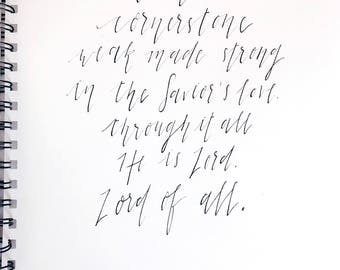 cornerstone
weak made strong
in the Savior's love.
through it all
He is Lord.
Lord of all.